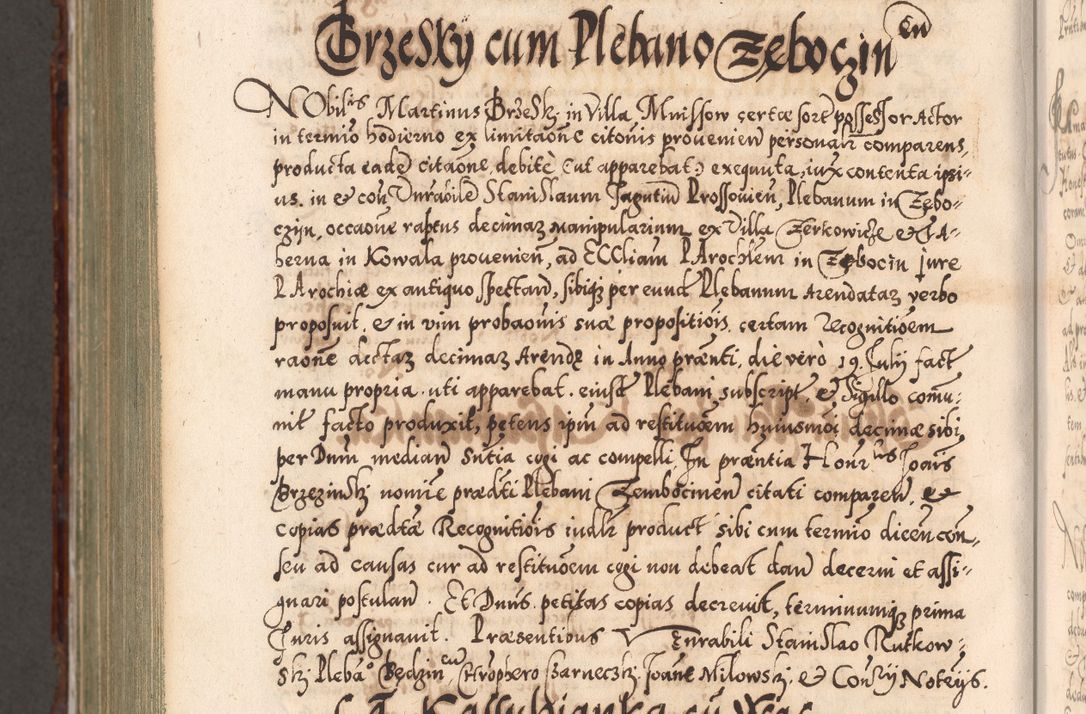 Brzesky cum Plebano Zęboczin en
NObilis Martinus Brzeski in Villa Mnissow certæ sort possessor Actor
in termio hodierno ex limitaone citonis provenien personalr comparens,
producta eade citaone, debite (ut apparebat) exequuta, iux contenta ipsi-
us. in et con Vnrabile Stanislaum Jagutiu Prossovien, Plebanum in Zębo-
czyn, occaone raptus decimaz manipularium ex Villa Zerkowicze et TA-
berna in Kowala provenien, ad ECCliam PArochlem in Zębocin jure
PArochiæ ex antiquo spectan, sibiqz per eund Plebanum Arendataz verbo
proposuit, et in vim probaonis suæ propositiois. certam Recognitioem
raone dectaz decimaz Arendę in Anno prænti, die verò 19. Julij fact
manu propria. uti apparebat. eiusd Plebani subscript, et Sigillo comu-
nit facto produxit, petens ipm ad restituoem huiusmoi decimæ sibi,
per Dnum median sntia cogi ac compelli. In præntia Honr Joais
Brzezinski nomie prædti Plebani Zembocinen citati comparen, et
copias prædtæ Recognitiois iudlr product sibi cum termio dicen con-
seu ad causas cur ad restituoem cogi non debeat dan decerni et assi-
gnari postulan. Et Dnus petitas copias decrevit, terminumqz prima
Juris assignavit. Præsentibus Venrabili Stanislao Rutkow-
ski Pleba° Będzin en, Krophero Barneczki, Joane Milowski et Consrij Noteijs.